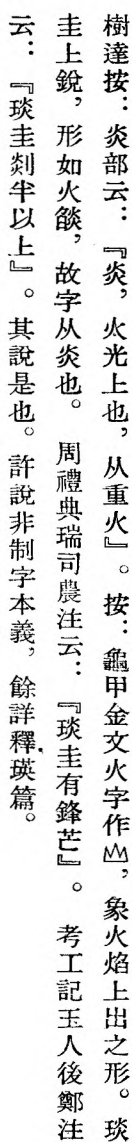 樹達按：炎部云：『炎，火光上也，从重火』。按：龜甲金文火字作，象火焰上出之形。琰
圭上銳，形如火燄，故字从炎也。周禮典瑞司農注云：『琰圭有鋒芒』。考工記玉人後鄭注
云：『琰圭剡半以上』。其說是也。許說非制字本義，餘詳釋瑛篇。